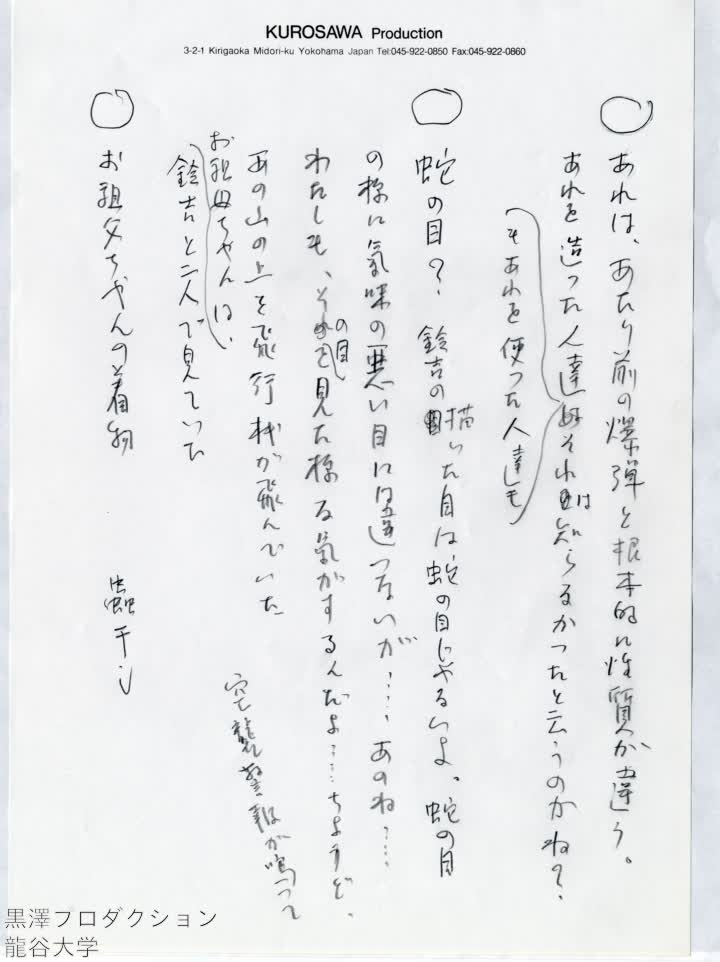 KUROSAWA Production
3-2-1 Kirigaoka Midori-ku Yokohama Japan Tel:045-922-0850 Fax:045-922-0860
○ あれは、あたり前の爆弾と根本的に性質が違う。
あれを造った人達はそれは知らなかったと云うのかね?
(もあれを使った人達も)
○ 蛇の目?、鈴吉の描いた目は蛇の目じゃないよ。蛇の目
の様に氣味の悪い目には違いないが‥‥、あのね‥‥
わたしも、その目を見た様な氣がするんだよ‥‥ちょうど、
あの山の上を飛行機が飛んでいた
空襲警報が鳴って
お祖母ちゃんは、
鈴吉と二人で見ていた
○ お祖父ちゃんの着物
蟲干し
黒澤プロダクション
龍谷大学